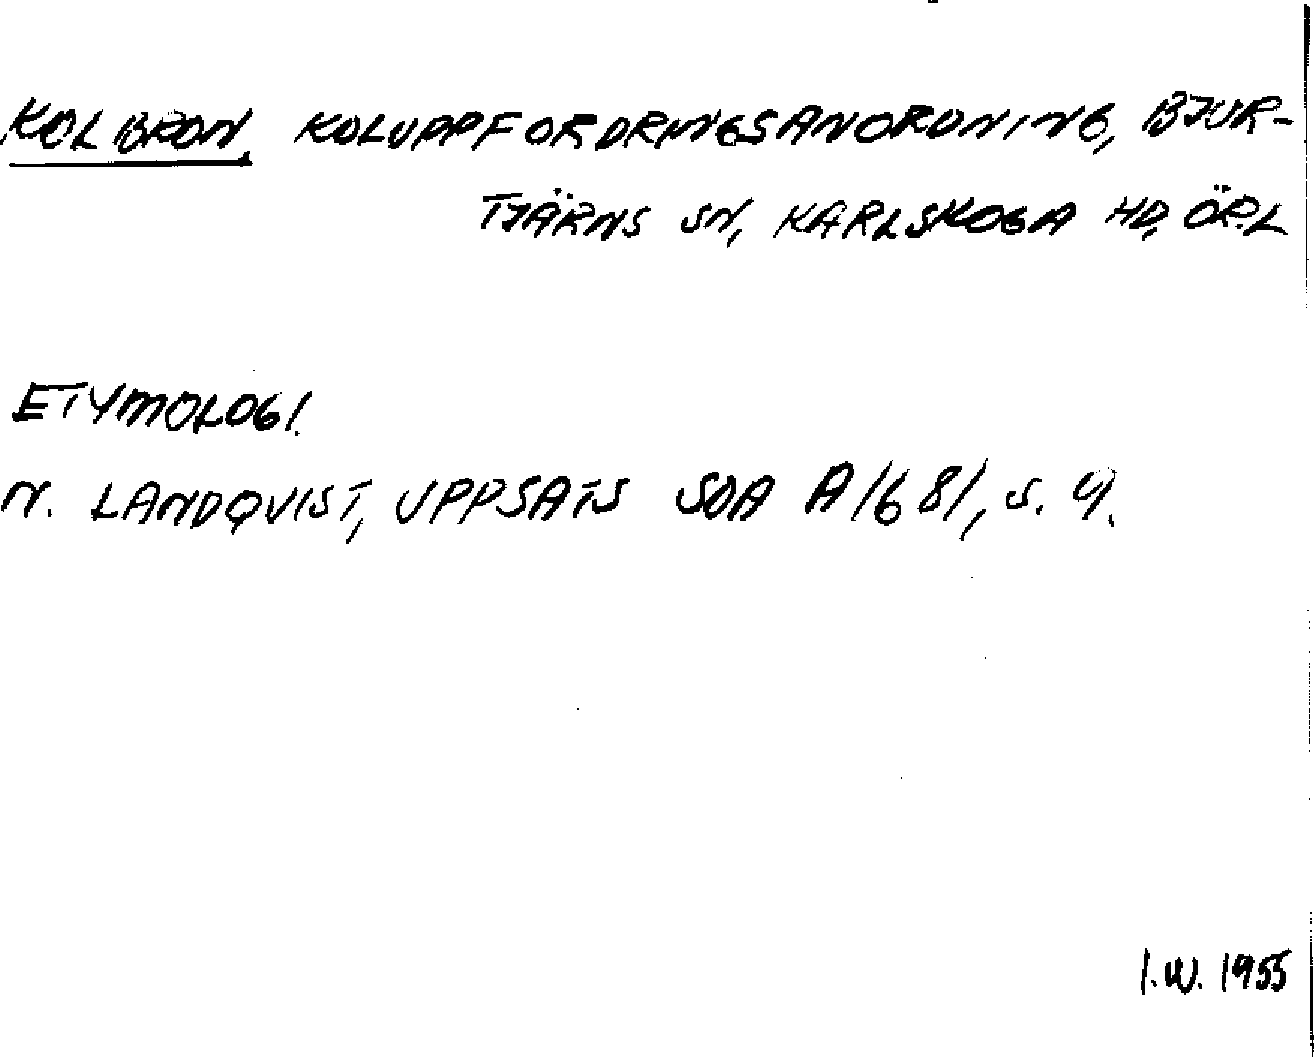 KOLBRON, KOLUPPFORDRINGSANORDNING, BJUR-
TJÄRNS SN, KARLSKOGA HD, ÖR.L
ETYMOLOGI.
N. LANDQVIST, UPPSATS SOA A1681, s. 9.
I.W. 1955